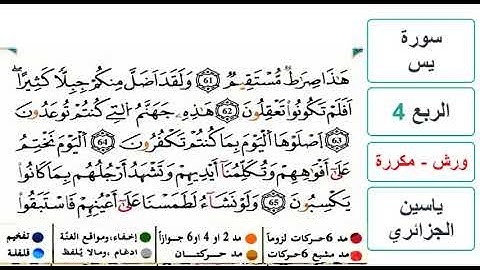 هَٰذَا صِرَٰطٞ مُّسْتَقِيمٞۖ 61 وَلَقَدَ اَضَلَّ مِنكُمْ جِبِلّٗا كَثِيراًۖ
اَفَلَمْ تَكُونُواْ تَعْقِلُونَۖ 62 هَٰذِهِۦ جَهَنَّمُ اُ۬لتِے كُنتُمْ تُوعَدُونَ
63 اَصْلَوْهَا اَ۬لْيَوْمَ بِمَا كُنتُمْ تَكْفُرُونَۖ 64 اَ۬لْيَوْمَ نَخْتِمُ
عَلَىٰٓ أَفْوَٰهِهِمْ وَتُكَلِّمُنَآ أَيْدِيهِمْ وَتَشْهَدُ أَرْجُلُهُم بِمَا كَانُواْ
يَكْسِبُونَۖ 65 وَلَوْ نَشَآءُ لَطَمَسْنَا عَلَىٰٓ أَعْيُنِهِمْ فَاسْتَبَقُواْ
مد 6 حركات لزوماً مد 2 او 4 او 6 جوازاً إخفاء، ومواقع الغنّة تفخيم
مد مشبع 6 حركات مد حركتان ادغام، ومالا يُلفظ قلقلة
سورة
يس
الربع 4
ورش - مكررة
ياسين
الجزائري